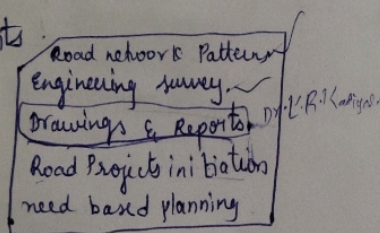 Road network Patterns
Engineering survey
Drawings & Reports
Road Projects initiation
need based planning